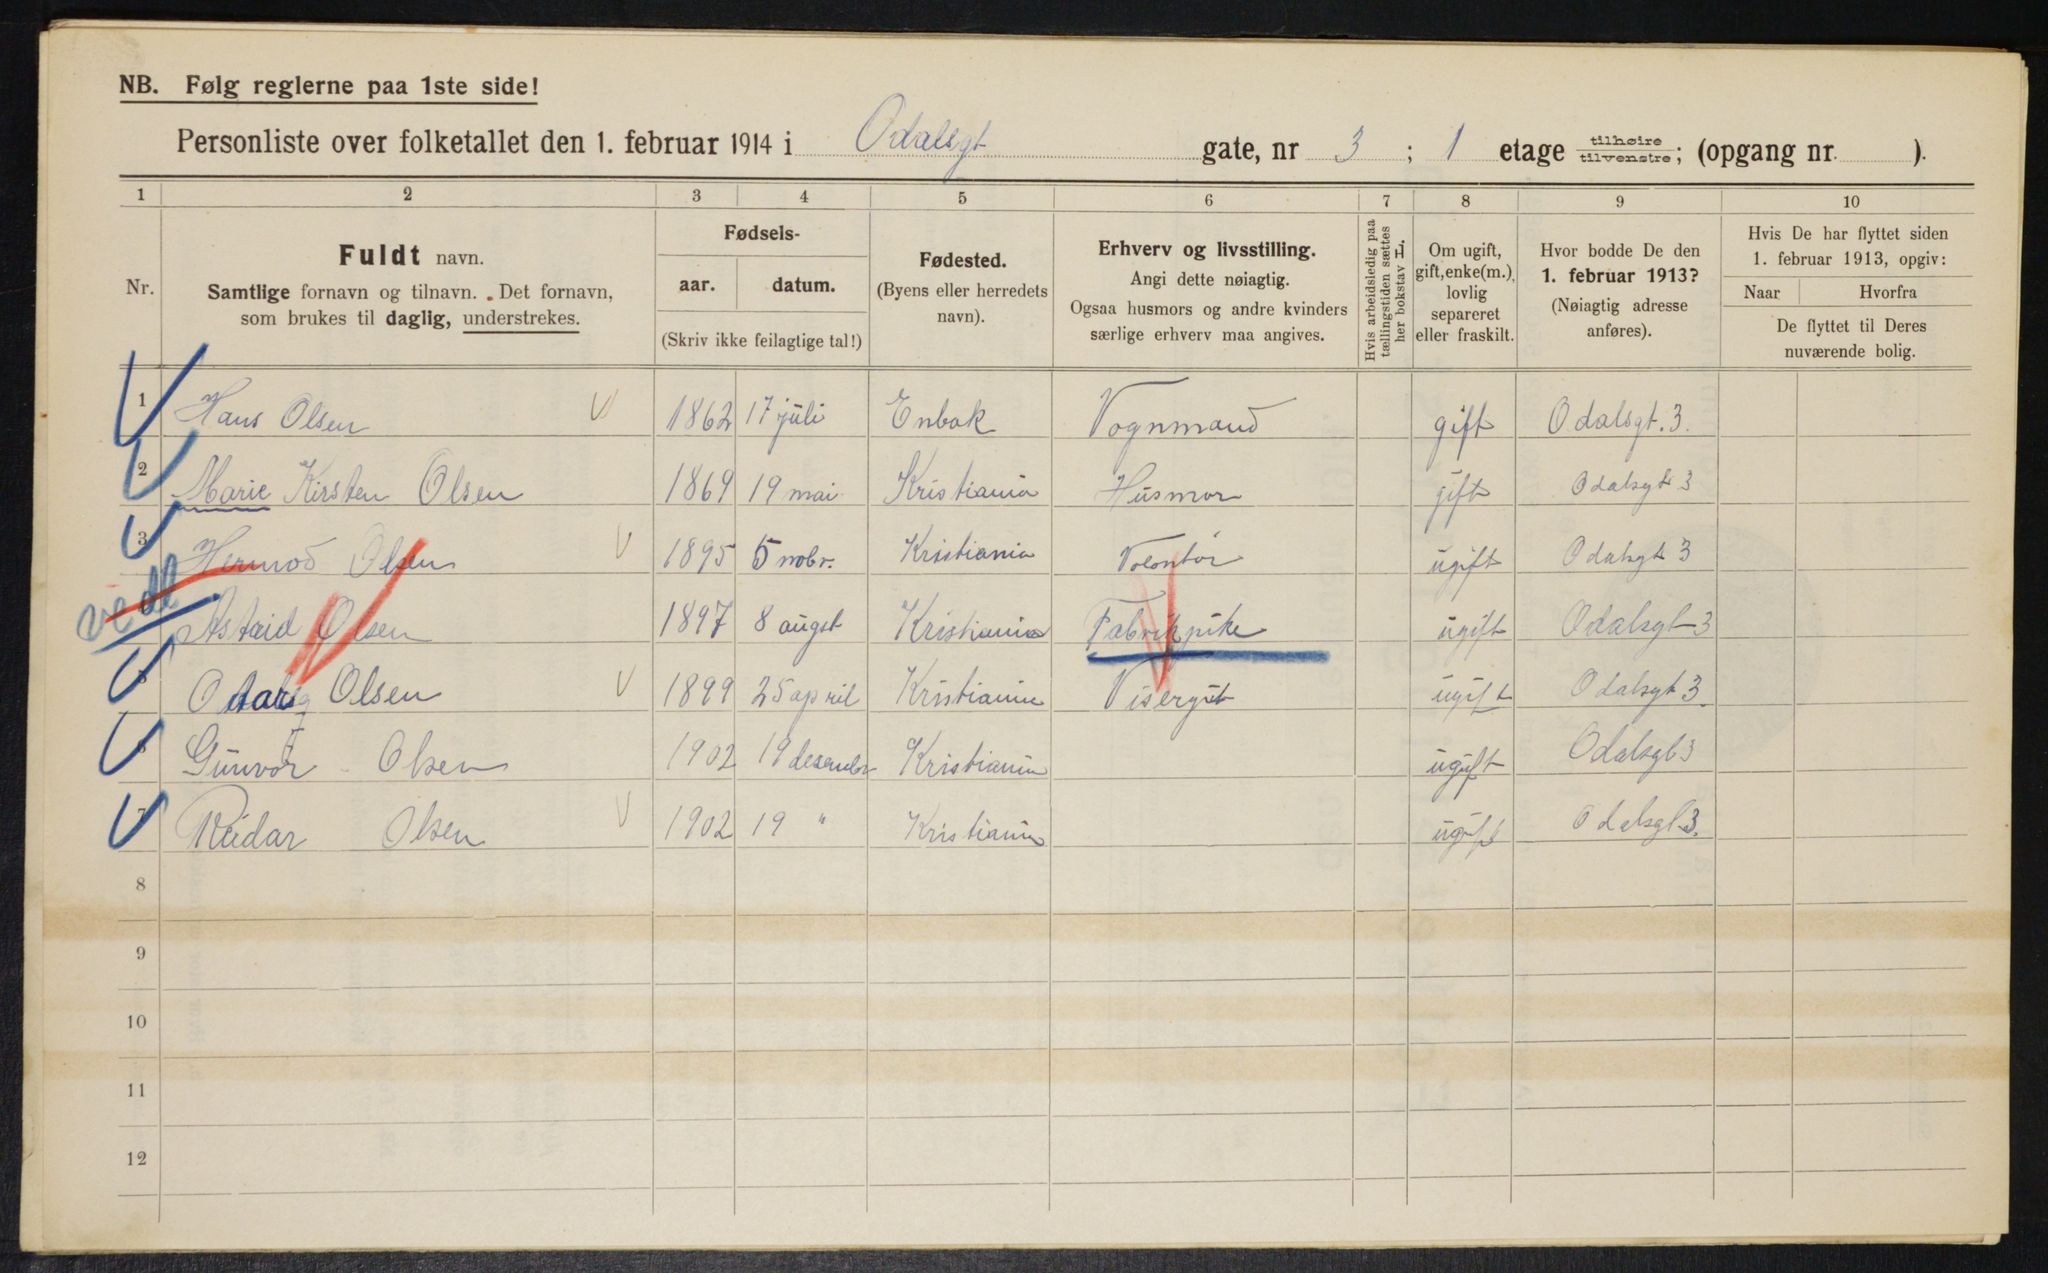 NB. Følg reglerne paa 1ste side!
Personliste over folketallet den 1. februar 1914 i Odalsgt gate, nr 3 ; 1 etage tilhøire/tilvenstre; (opgang nr. ).
1 2 3 4 5 6 7 8 9 10
Nr.
Fuldt navn.
Samtlige fornavn og tilnavn. Det fornavn,
som brukes til daglig, understrekes.
Fødsels-
aar. datum.
(Skriv ikke feilagtige tal!)
Fødested.
(Byens eller herredets
navn).
Erhverv og livsstilling.
Angi dette nøiagtig.
Ogsaa husmors og andre kvinders
særlige erhverv maa angives.
Hvis arbeidsledig paa
tællingstiden sættes
her bokstav L.
Om ugift,
gift, enke(m.),
lovlig
separeret
eller fraskilt.
Hvor bodde De den
1. februar 1913?
(Nøiagtig adresse
anføres).
Hvis De har flyttet siden
1. februar 1913, opgiv:
Naar Hvorfra
De flyttet til Deres
nuværende bolig.
1 Hans Olsen 1862 17 juli Enbak Vognmand gift Odalsgt. 3.
2 Marie Kirsten Olsen 1869 19 mai Kristiania Husmor gift Odalsgt 3
3 Hermod Olsen 1895 5 nobr. Kristiania Volontør ugift Odalsgt 3
vedl
Astrid Olsen 1897 8 augst Kristiania Fabrikpike ugift Odalsgt 3
5 Olsen 1899 25 april Kristiania Visergut ugift Odalsgt 3.
6 Gunvor Olsen 1902 19 desembr Kristiania ugift Odalsgt 3
7 Reidar Olsen 1902 19 " Kristiania ugift Odalsgt 3.
8
9
10
11
12